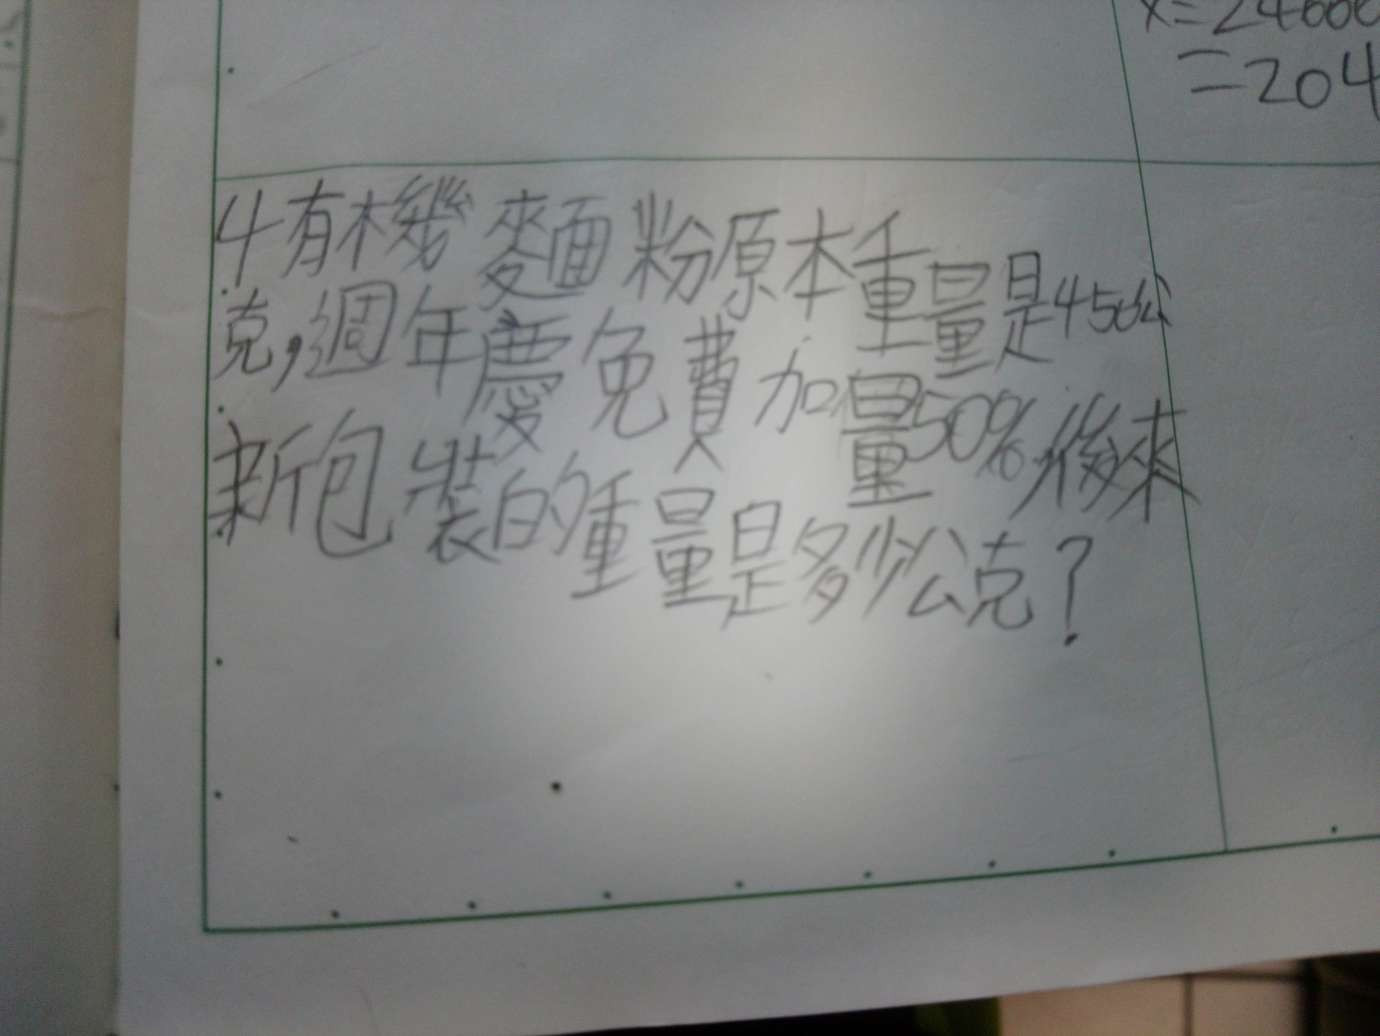 =204
4有機麵粉原本重量是450公
克,週年慶免費加量50%,後來
新包裝的重量是多少公克?